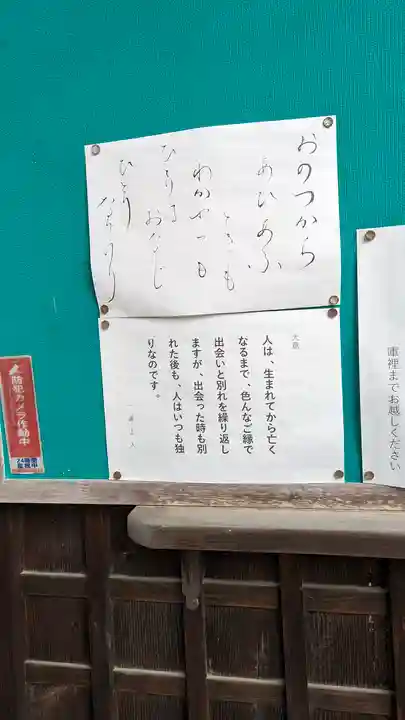 おのつから
あひあふ
ときも
わかれても
ひとりは
おなじ
ひとり
なりけり
大意
人は、生まれてから亡く
なるまで、色んなご縁で
出会いと別れを繰り返し
ますが、出会った時も別
れた後も、人はいつも独
りなのです。
上人
庫裡までお越しください
防犯カメラ作動中